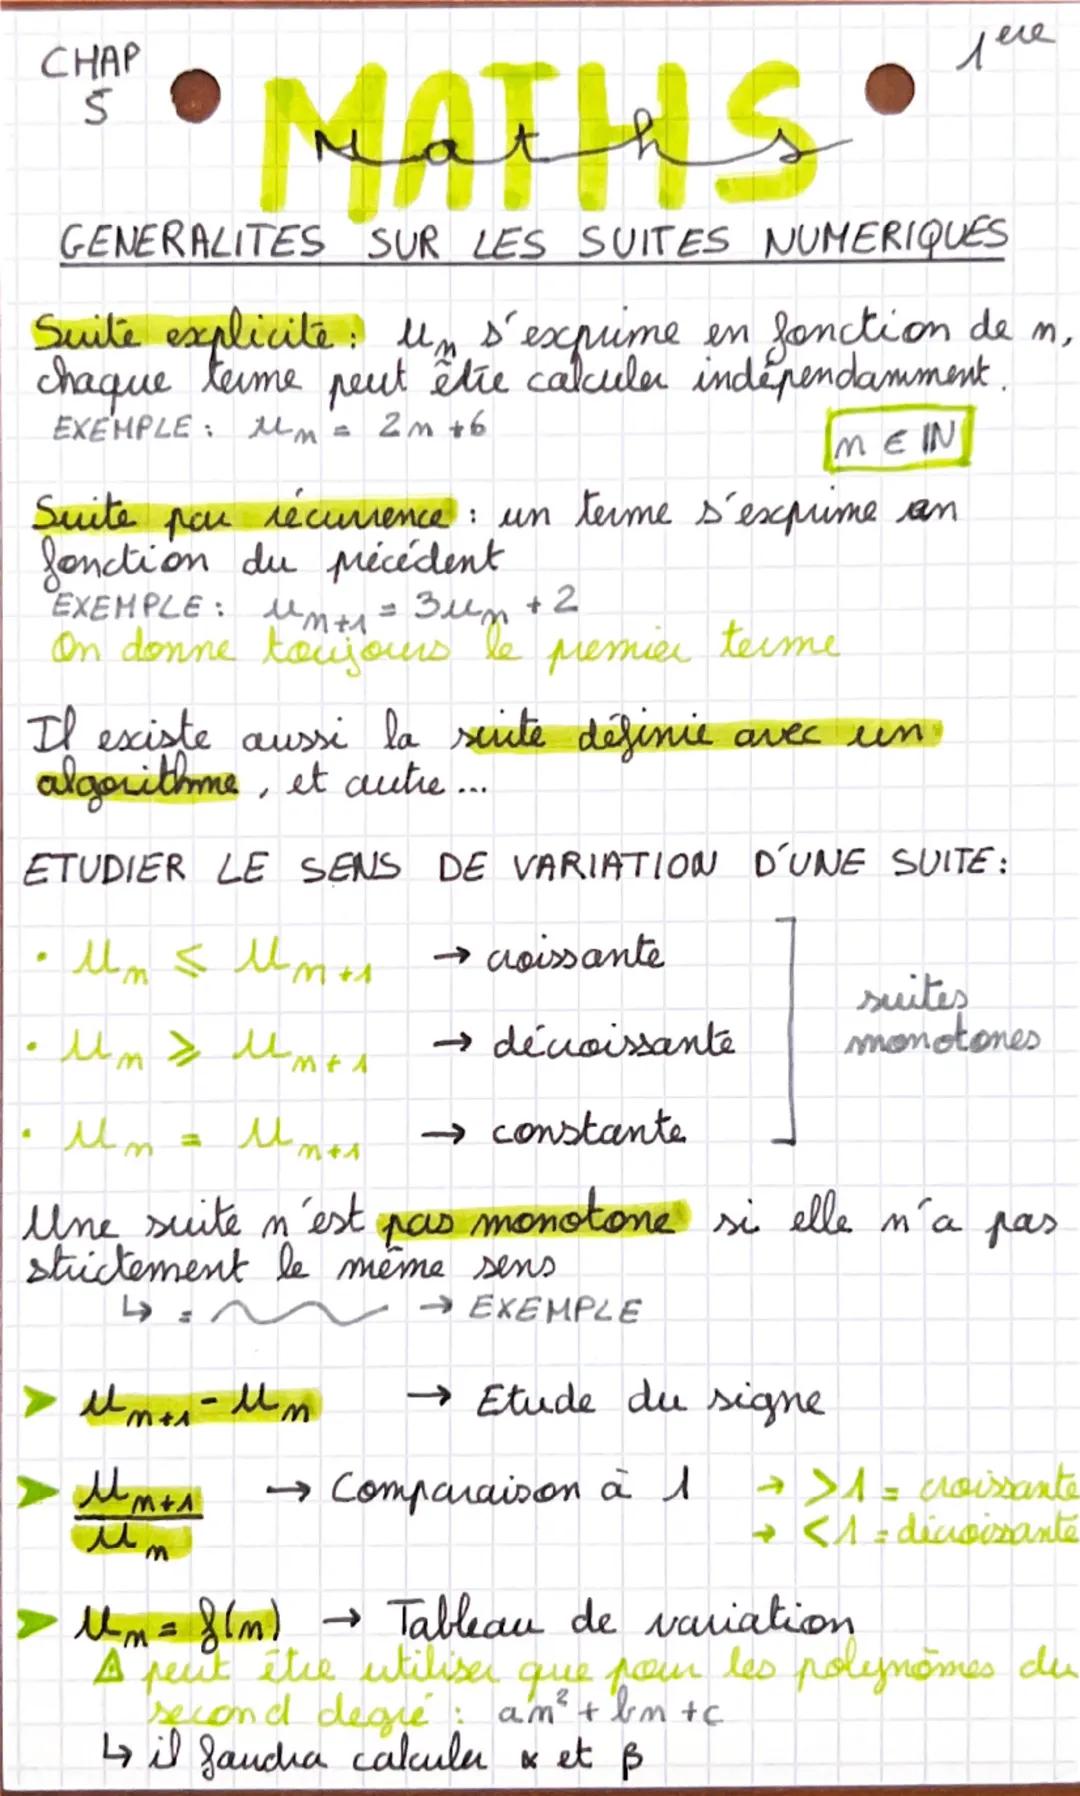 CHAP
5
1ere
MATHS
Maths
GENERALITES SUR LES SUITES NUMERIQUES
Suite explicite : un s'exprime en fonction de n,
chaque terme peut être calculer indépendamment.
EXEMPLE : un = 2n +6
n ∈ IN
Suite par récurrence : un terme s'exprime en
fonction du précédent
EXEMPLE : un+1 = 3un + 2
On donne toujours le premier terme
Il existe aussi la suite définie avec un
algorithme, et autre ...
ETUDIER LE SENS DE VARIATION D'UNE SUITE :
• un ⩽ un+1 → croissante
• un ⩾ un+1 → décroissante
• un = un+1 → constante
suites
monotones
Une suite n'est pas monotone si elle n'a pas
strictement le même sens
↳ = → EXEMPLE
➤ un+1 - un → Etude du signe
➤ un+1 / un → Comparaison à 1
→ >1 = croissante
→ <1 = décroissante
➤ un = f(n) → Tableau de variation
⚠ peut être utiliser que pour les polynômes du
second degré : an² + bn + c
↳ il faudra calculer α et β